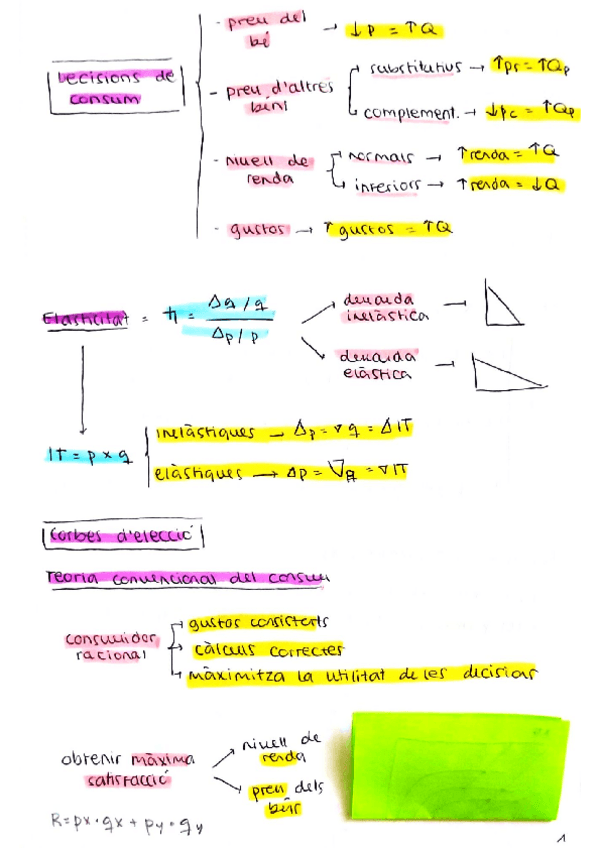 Decisions de consum
- preu del bé → ↓p = ↑Q
- preu d'altres béns
substitutius → ↑ps = ↑Qp
complement. → ↓pc = ↑Qp
- nivell de renda
normals → ↑renda = ↑Q
inferiors → ↑renda = ↓Q
- gustos → ↑ gustos = ↑Q
Elasticitat = η = Δq / q
Δp / p
demanda inelàstica →
demanda elàstica →
IT = p x q
inelàstiques → Δp = ∇q = ΔIT
elàstiques → Δp = ∇q = ∇IT
Corbes d'elecció
Teoria convencional del consum
consumidor racional
gustos consistents
càlculs correctes
màximitza la utilitat de les decisions
obtenir màxima satisfacció
nivell de renda
preu dels béns
R = px · qx + py · qy
1